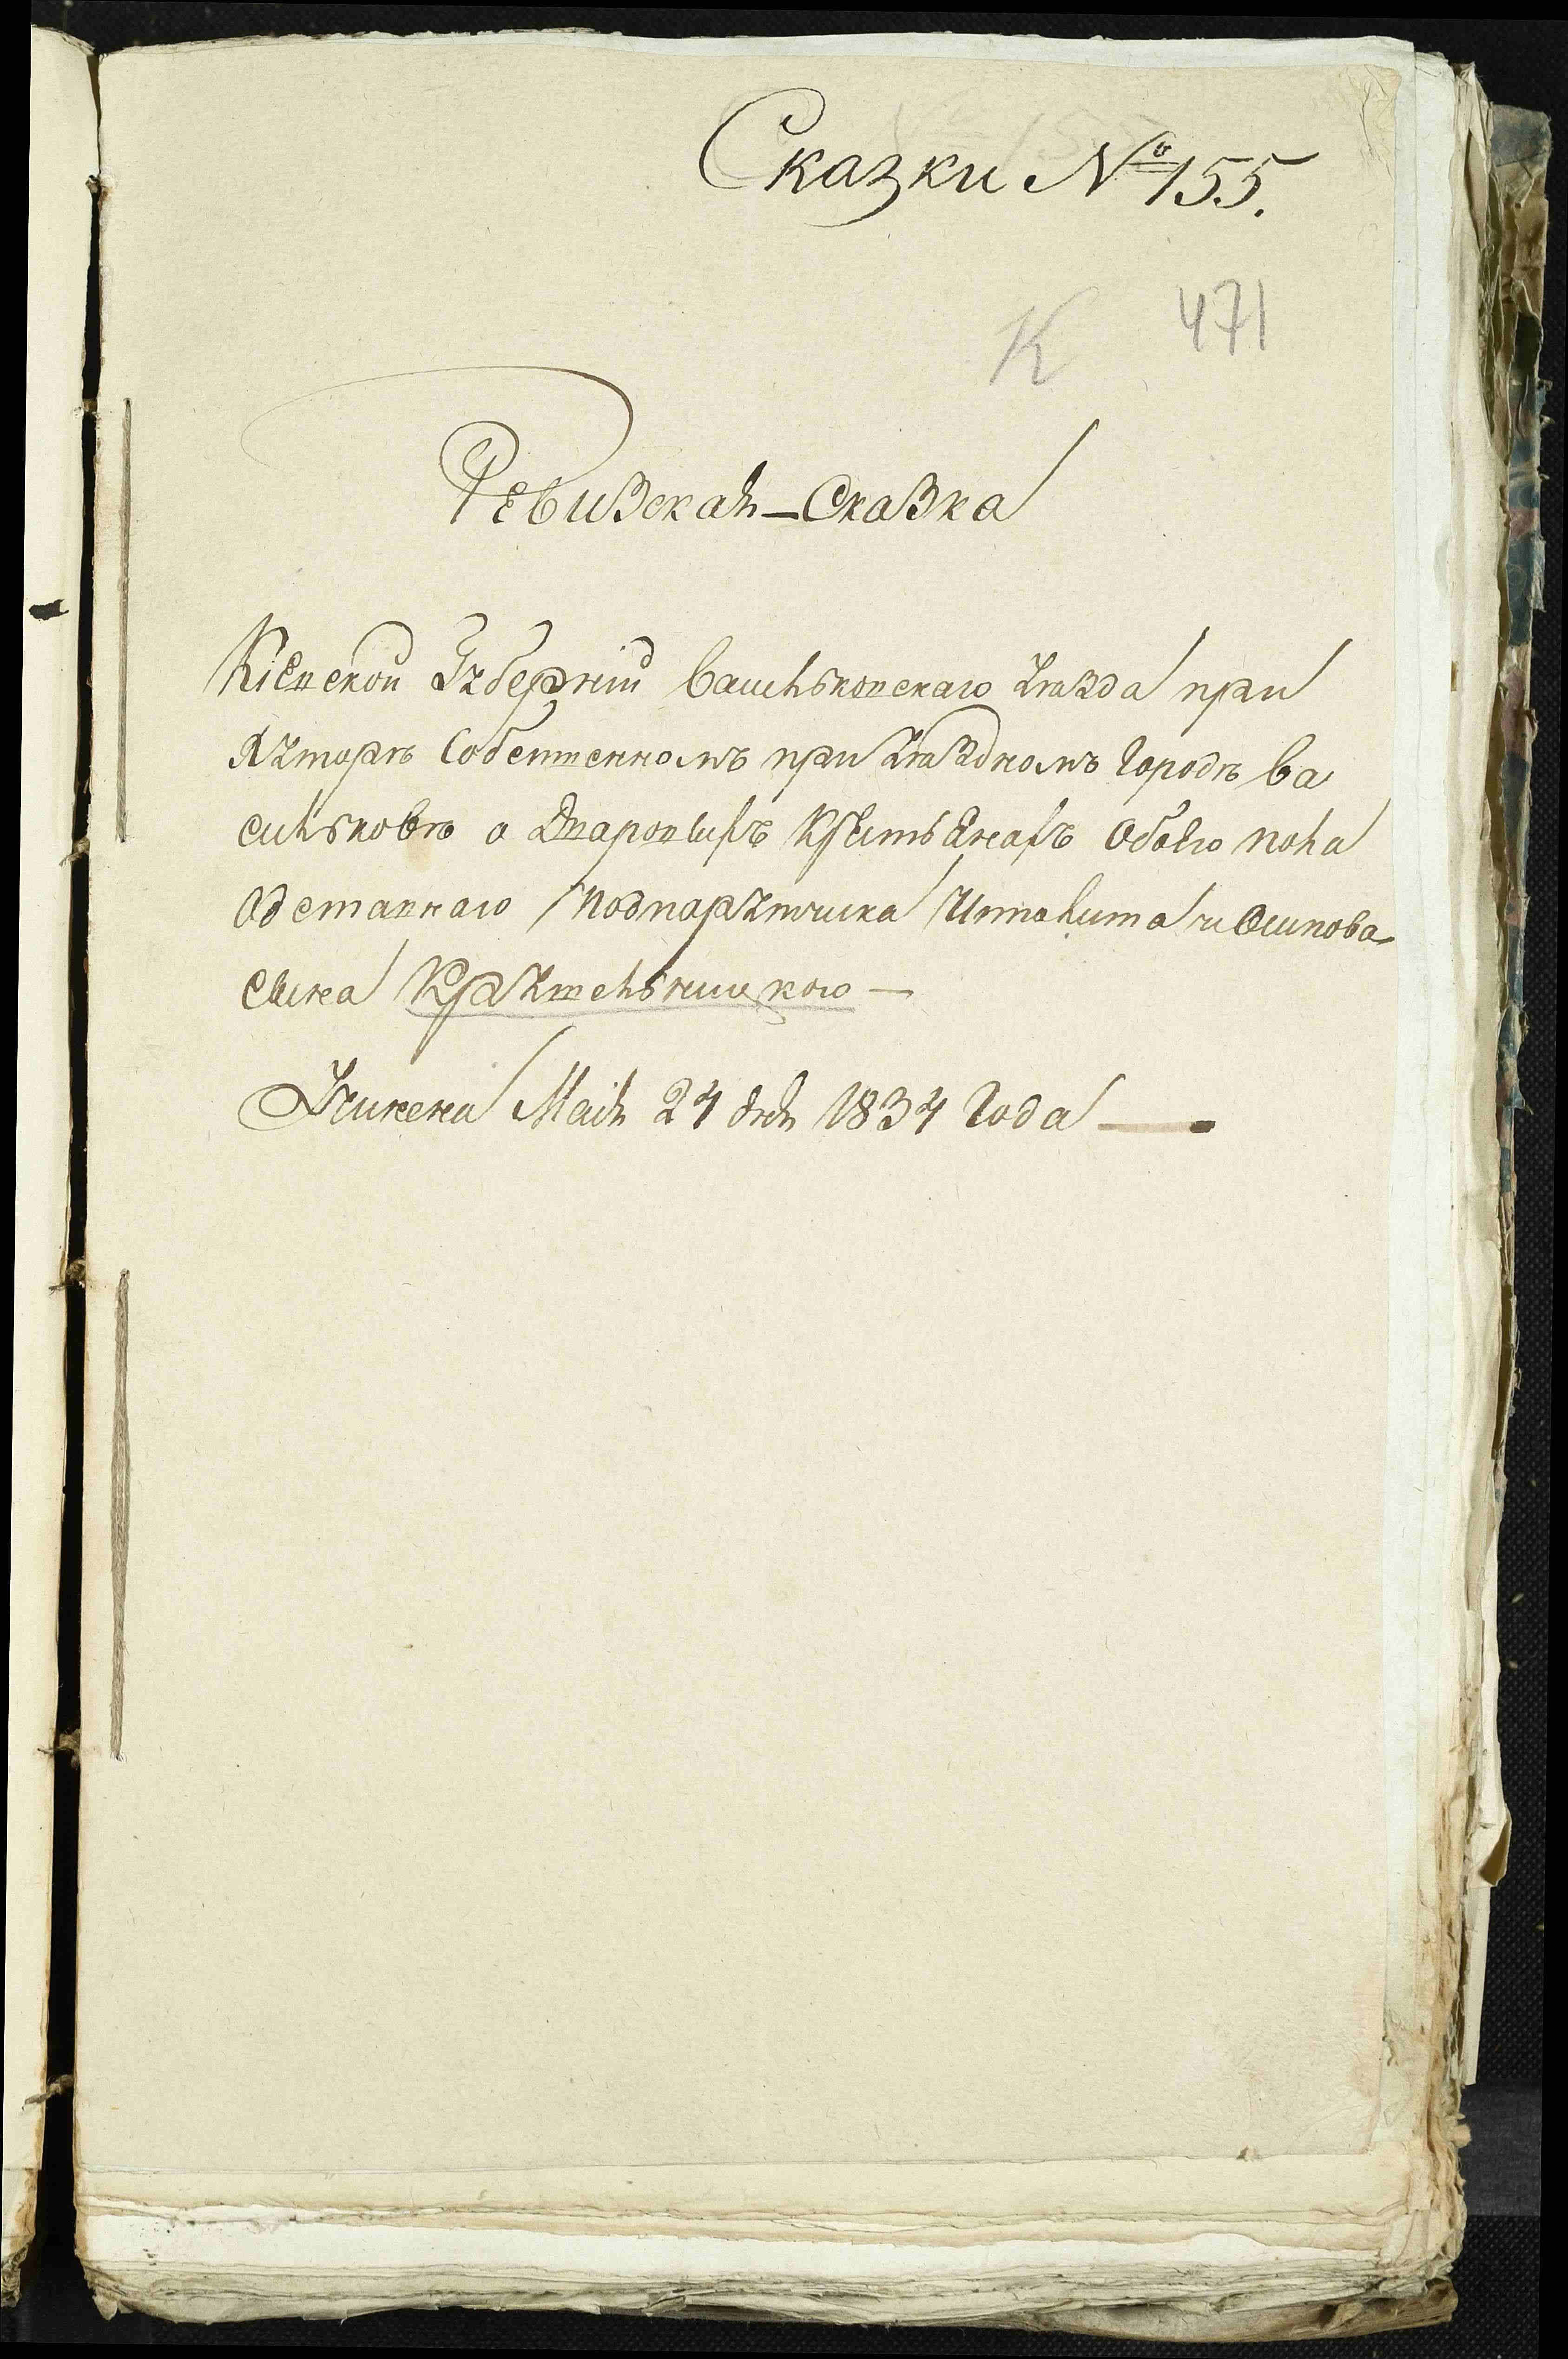 Сказки № 155.
К 471
Ревизская – Сказка
Кіевской Губерніи Васильковскаго уезда при
хуторѣ Собственномъ при уездномъ городѣ Ва
сильковѣ о дваровыхъ крестьянахъ обоего пола
одставнаго подпарутчика Ипполита Осипова
сына
Учинена Маія 24 дня 1834 года